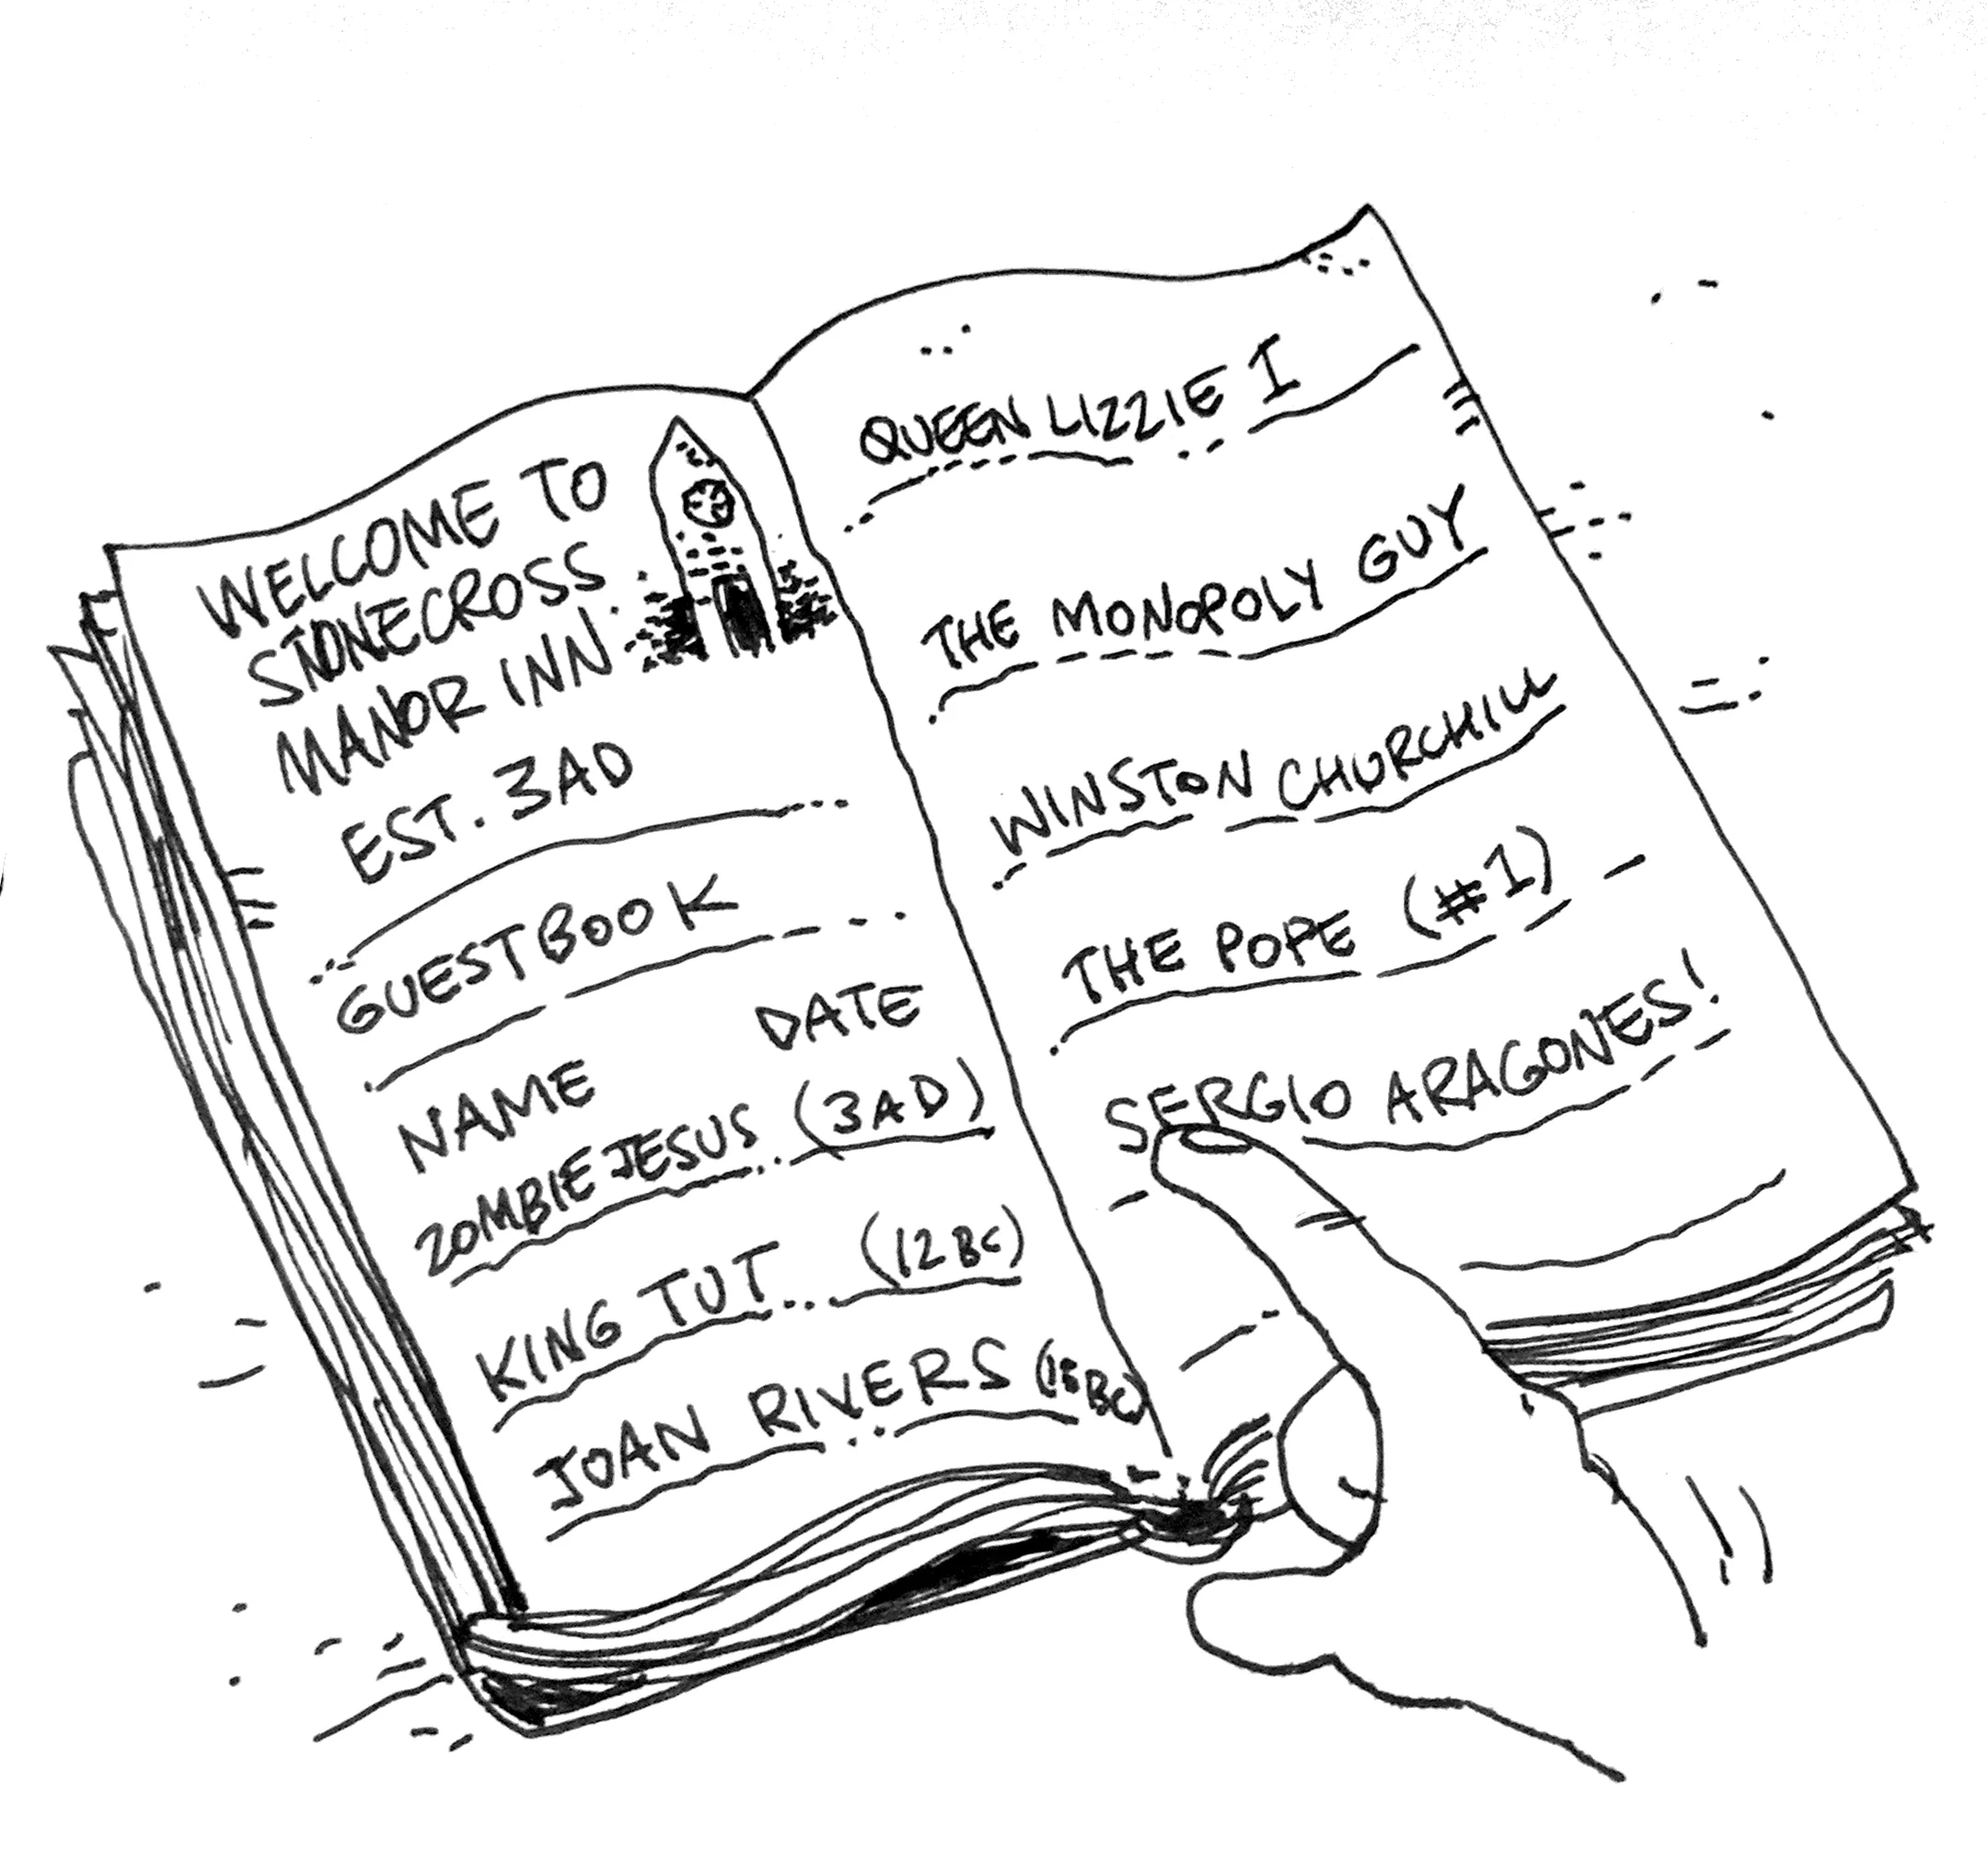 WELCOME TO
STONECROSS
MANOR INN
EST. 3AD
GUESTBOOK
NAME DATE
ZOMBIE JESUS (3AD)
KING TUT (12BC)
JOAN RIVERS
QUEEN LIZZIE I
THE MONOPOLY GUY
WINSTON CHURCHILL
THE POPE (#1)
SERGIO ARAGONES!